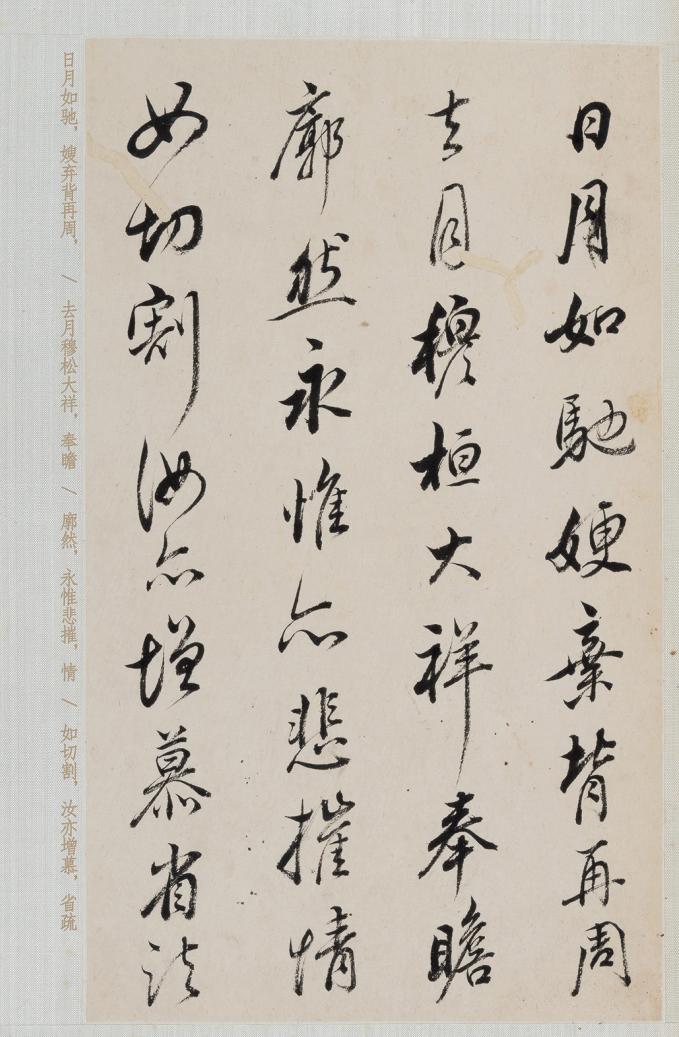 日月如馳嫂棄背再周
去月穆桓大祥奉瞻
廓然永惟亦悲摧情
如切割汝亦增慕省疏
日月如驰，嫂弃背再周，/去月穆松大祥，奉瞻/廓然，永惟悲摧，情/如切割，汝亦增慕，省疏